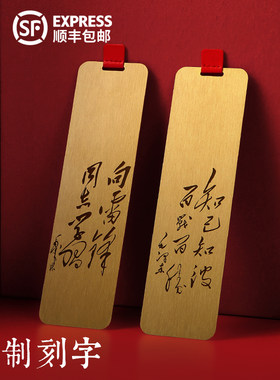 SF EXPRESS
顺丰包邮
向雷锋
同志学习
毛泽东
知己知彼
百战百胜
毛泽东
制刻字